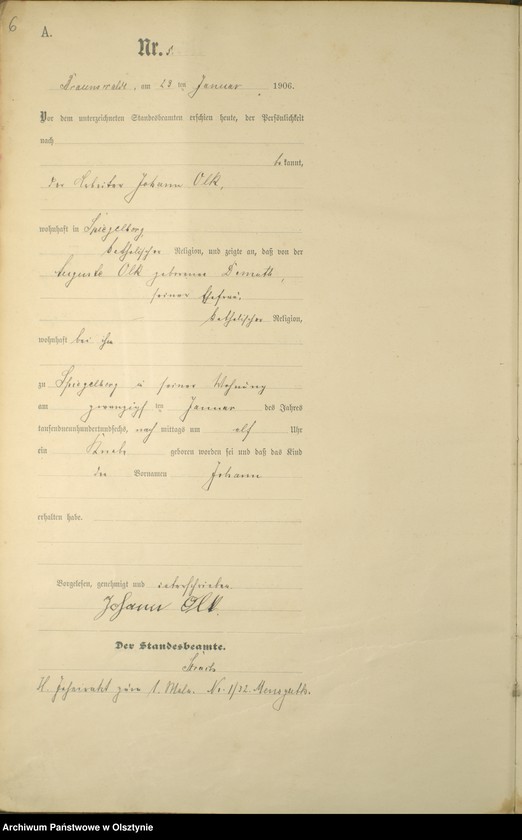 6
A.
Nr. 5
Braunswalde, am 23 ten Januar 1906.
Vor dem unterzeichneten Standesbeamten erschien heute, der Persönlichkeit
nach
bekannt,
der Arbeiter Johann Olk,
wohnhaft in Spiegelberg
katholischer Religion, und zeigte an, daß von der
Auguste Olk geborenen
seiner Ehefrau,
katholischer Religion,
wohnhaft bei ihm
zu Spiegelberg in seiner Wohnung
am zwanzigsten Januar des Jahres
tausendneunhundertundsechs, nach mittags um elf Uhr
ein Knabe geboren worden sei und daß das Kind
den Vornamen Johann
erhalten habe.
Vorgelesen, genehmigt und unterschrieben
Johann Olk.
Der Standesbeamte.
H. zum 1. Male. Nr. 1/32
Archiwum Państwowe w Olsztynie